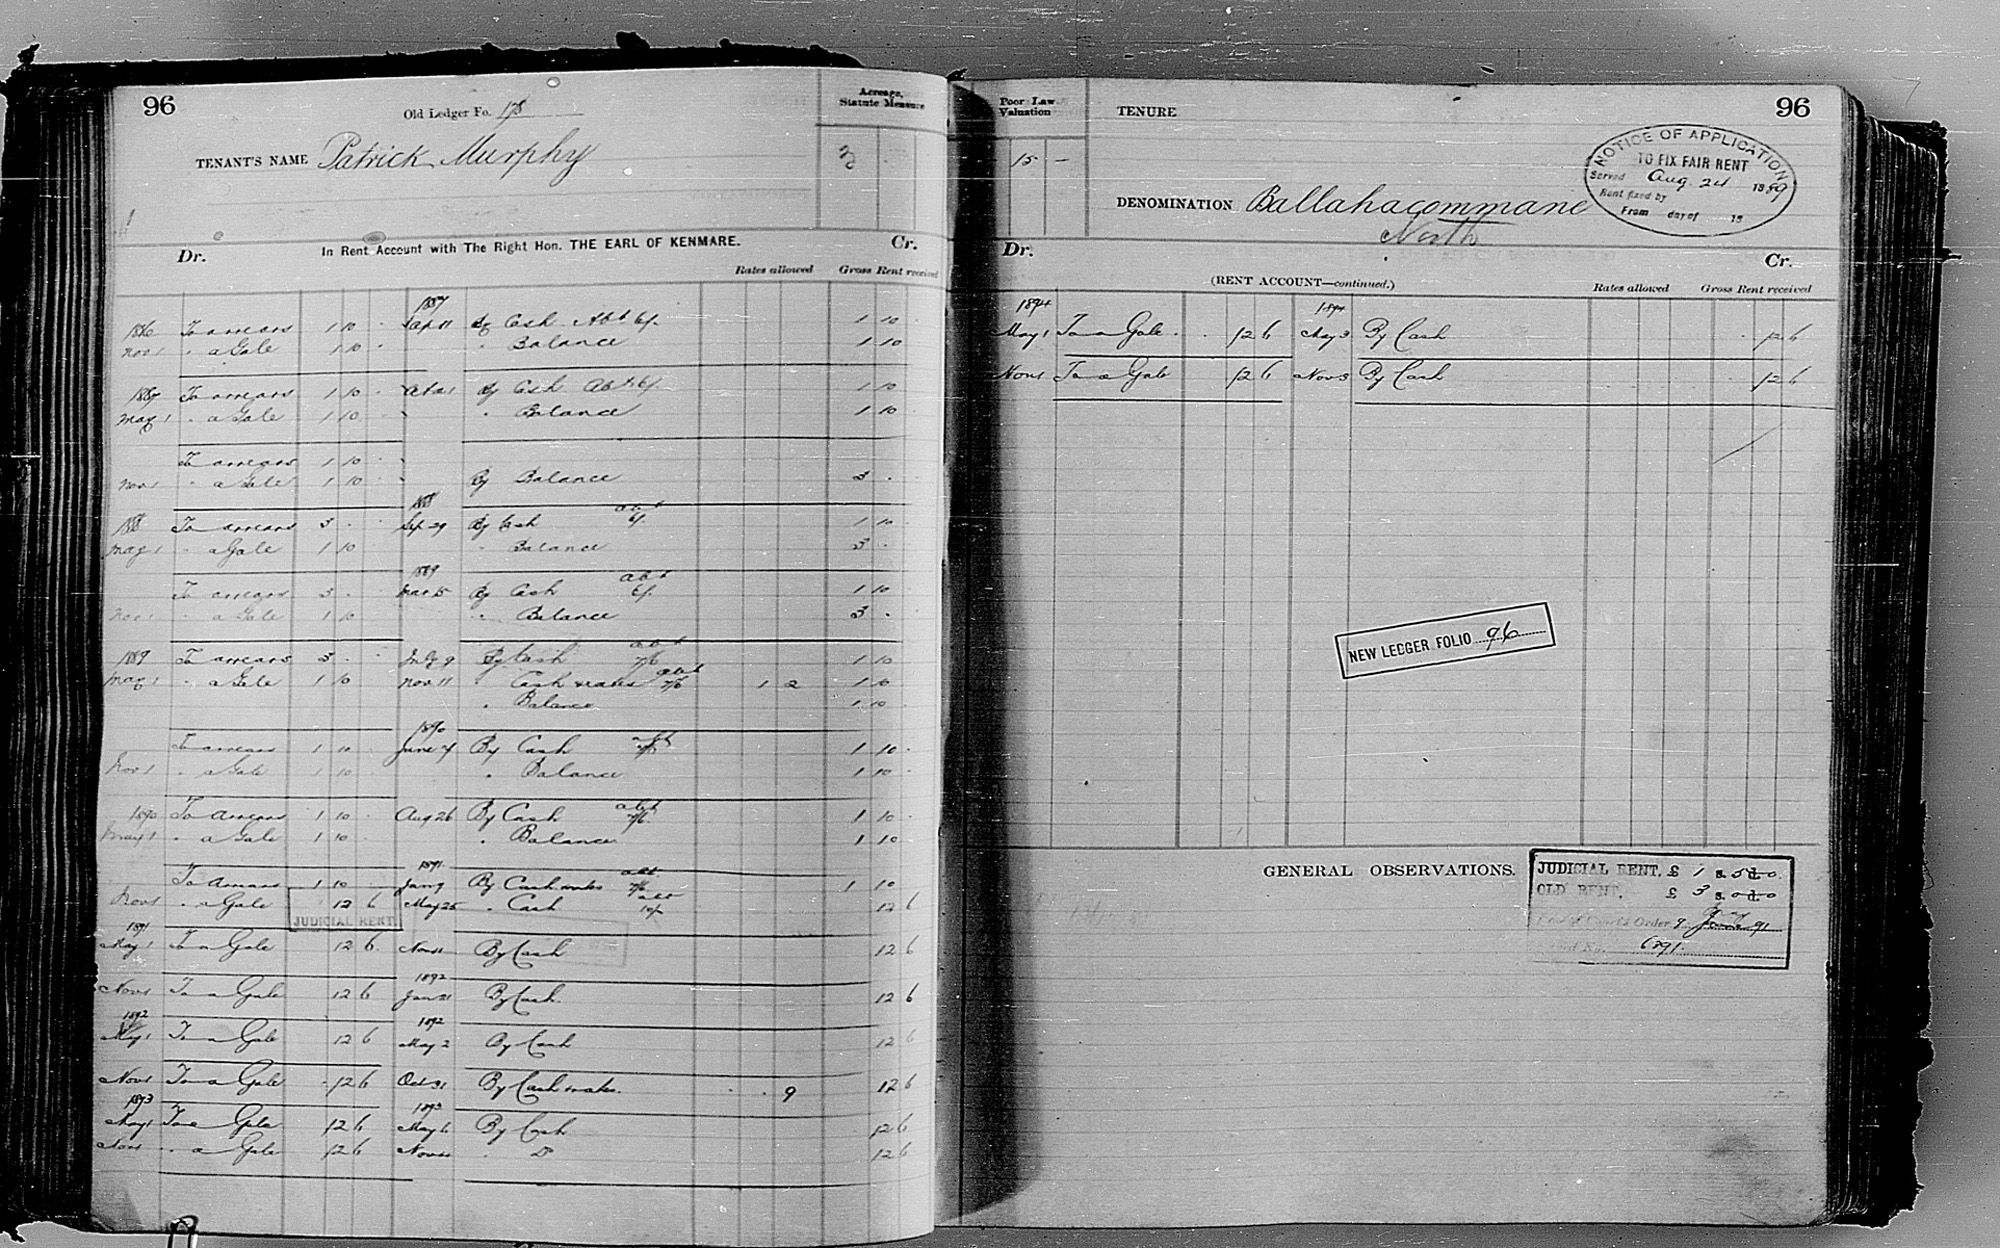 96
Old Ledger Fo. 178
Acreage, Statute Measure
TENANT'S NAME Patrick Murphy
3
Dr. In Rent Account with The Right Hon. THE EARL OF KENMARE. Cr.
Rates allowed Gross Rent received
1887
1886 To arrears 1 10 - Sep 11 By Cash Abt 6/- 1 10
Nov 1 " a Gale 1 10 - " Balance 1 10
1887 To arrears 1 10 - By Cash Abt 6/- 1 10
May 1 " a Gale 1 10 - " Balance 1 10
To arrears 1 10
Nov 1 " a Gale 1 10 By Balance 3 -
1888
1888 To arrears 3 - Sep 29 By Cash abt 6/- 1 10
May 1 " a Gale 1 10 " Balance 3 -
1889
To arrears 3 - Mar 15 By Cash abt 6/- 1 10
Nov 1 " a Gale 1 10 " Balance 3 -
1889 To arrears 3 - July 9 By Cash abt 7/6 1 10
May 1 " a Gale 1 10 Nov 11 " Cash & rates abt 7/6 1 2 1 10
" Balance 1 10
1890
To arrears 1 10 June 4 By Cash abt 7/6 1 10 -
Nov 1 " a Gale 1 10 " Balance 1 10 -
1890 To arrears 1 10 Aug 26 By Cash abt 7/6 1 10 -
May 1 " a Gale 1 10 " Balance 1 10
1891
To arrears 1 10 Jan 9 By Cash & rates abt 7/6 1 10
Nov 1 " a Gale 12 6 May 25 " Cash abt 10/- 12 6
JUDICIAL RENT
1891
May 1 To a Gale 12 6 Nov 11 By Cash 12 6
1892
Nov 1 To a Gale 12 6 Jan 21 By Cash 12 6
1892 1892
May 1 To a Gale 12 6 May 2 By Cash 12 6
Nov 1 To a Gale 12 6 Oct 31 By Cash & rates 9 12 6
1893 1893
May 1 To a Gale 12 6 May 6 By Cash 12 6
Nov 1 " a Gale 12 6 " Do 12 6
Poor Law Valuation
TENURE
96
15 -
NOTICE OF APPLICATION
TO FIX FAIR RENT
Served Aug. 24 1889
Rent fixed by
From day of 18
DENOMINATION Ballahacommane
North
Dr. Cr.
(RENT ACCOUNT—continued.)
Rates allowed Gross Rent received
1894 1894
May 1 To a Gale 12 6 May 3 By Cash 12 6
Nov 1 To a Gale 12 6 Nov 3 By Cash 12 6
NEW LEDGER FOLIO 96
GENERAL OBSERVATIONS.
JUDICIAL RENT, £ 1 s. 5 d. 0
OLD RENT, £ 3 s. 0 d. 0
May
Date of Court's Order 9 June 91
Record No. 6891